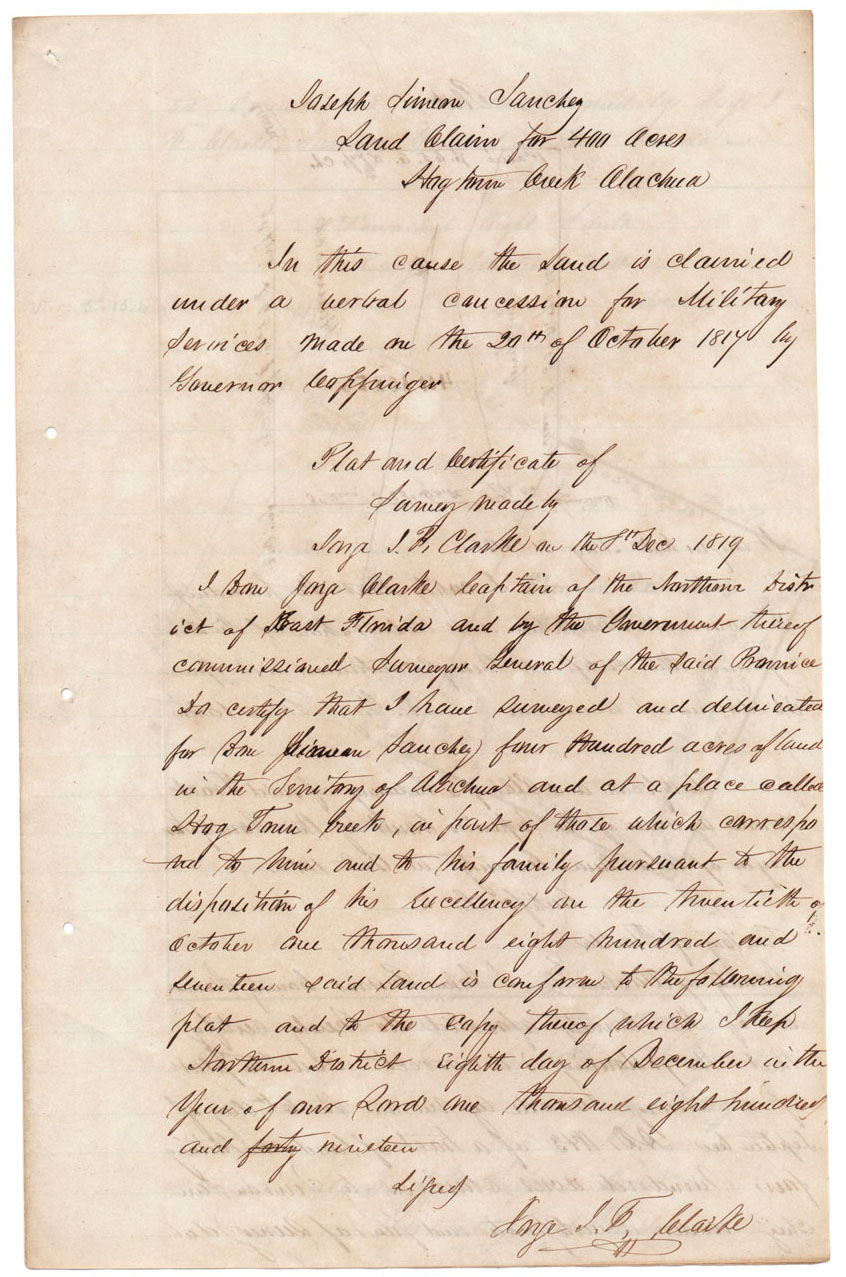 Joseph Simeon Sanchez
Land Claim for 400 Acres
Hog town Creek Alachua
In this cause the Land is claimed
under a verbal concession for Military
Services made on the 20th of October 1817 by
Governor Coppinger
Plat and Certificate of
Survey made by
Jorge J. F. Clarke on the 8th Dec 1819
I Don Jorge Clarke Captain of the Northern Distr-
ict of East Florida and by the Government thereof
commissioned Surveyor General of the said Province
Do certify that I have surveyed and delineated
for Don Simeon Sanchez four Hundred acres of land
in the Territory of Alachua and at a place called
Hog Town Creek, in part of those which correspo
nd to him and to his family pursuant to the
disposition of his Excellency on the twentieth of
October one thousand eight hundred and
seventeen said land is conform to the following
plat and to the copy thereof which I keep
Northern District Eighth day of December in the
Year of our Lord one thousand eight hundred
and forty nineteen
Signed
Jorge J. F. Clarke